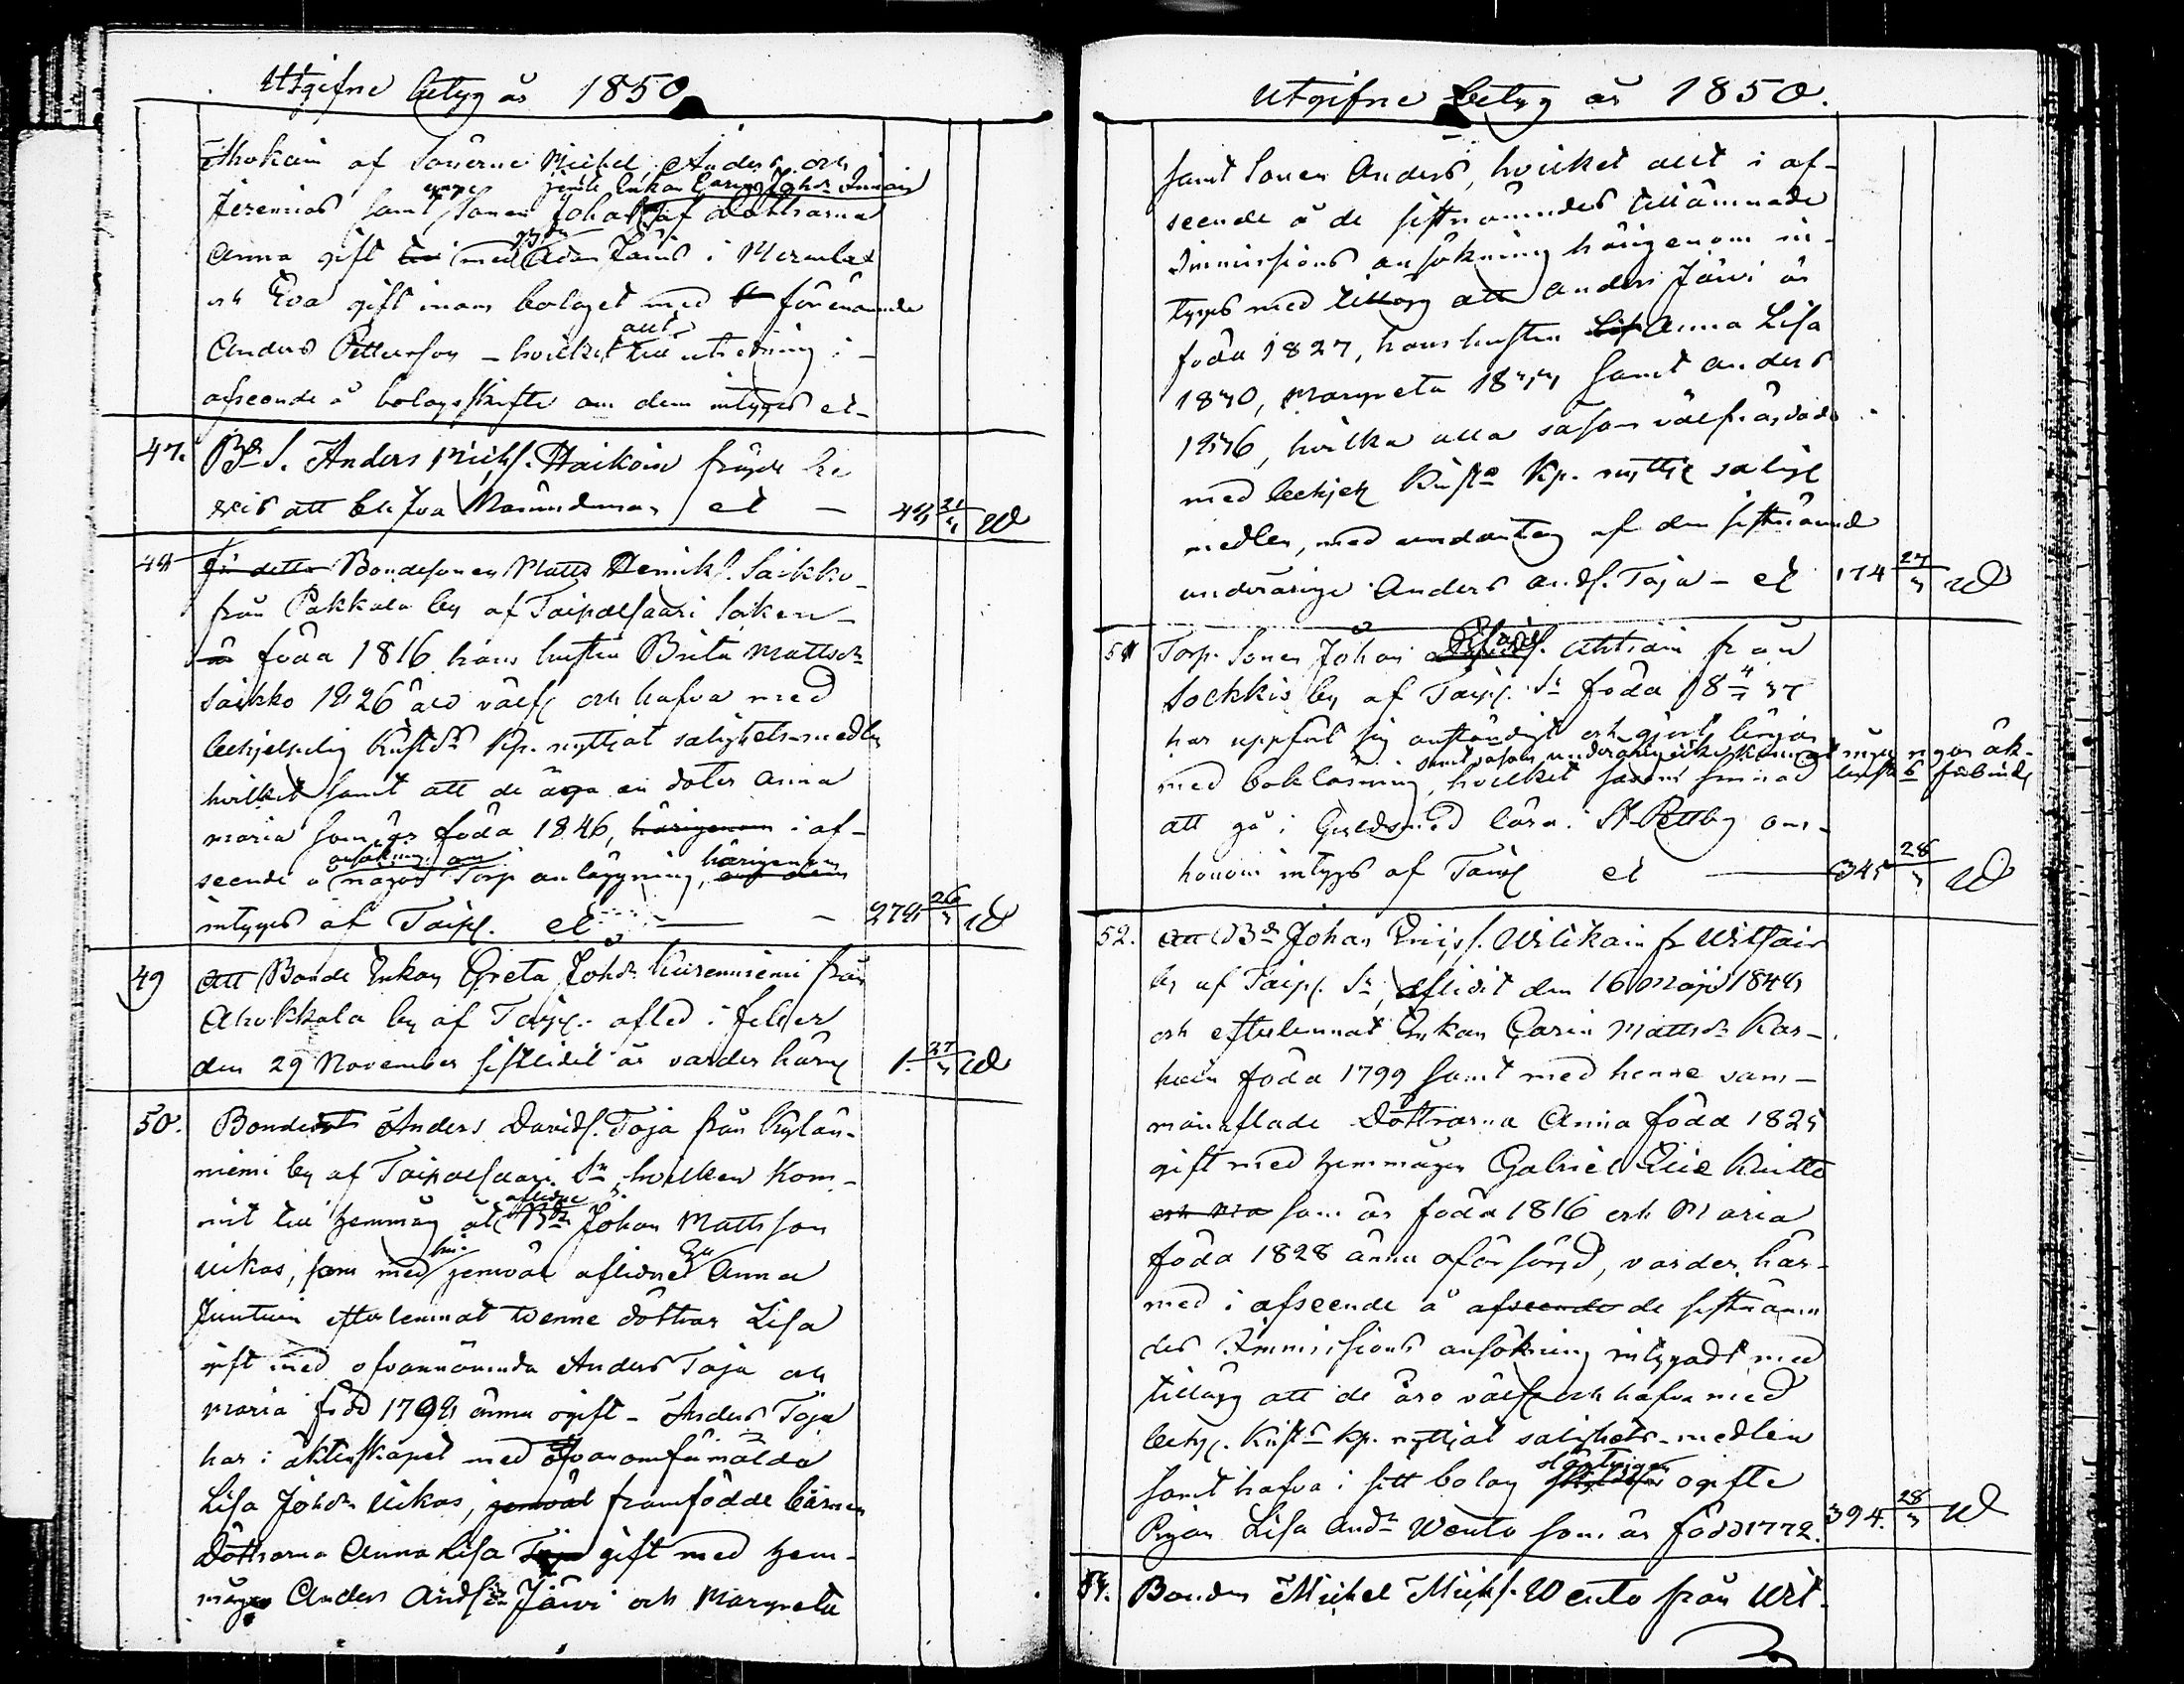 Utgifne betyg år 1850
Ihokain af Sönerne Michel, Anders och
enge jemte Enkan Carin Johsdr Innain
Jeremias samt Sonen Johan, af döttrarna
Anna gift med Adam Jäüs i
och Eva gift inom bolaget med förenämnde
Anders Pettersson – hvilket allt till utredning i
afseende å bolagsskifte om dem intygas et –
47. Bd S. Anders Michs. Haikoin
att blifva et – 21 W
48 för detta Bondesonen Matts Henriks. Saikko
från Pakkala by af Taipalsaari Soken –
är föda 1816 hans hustru Brita Mattsdr
Saikko 1826 äro välfr och hafva med
behjelpelig Kristds kp. nyttjat salighets-medlen
hvilket samt att de äga en doter Anna
Maria som är föda 1846, härigenom i af-
ansökning om härigenom
seende å någon Torp anläggning,
intygas af Taipl. et – 274 26 W
49 att Bonde Enkan Greta Johdr Kurenniemi från
Ahokkala by af Taipl. afled i feber
den 29 November sistlidit år varder häri 1. 27 W
50. Bonden Anders Davids. Toja från Kylän-
niemi by af Taipalsaari Sn, hvilken kom-
aflidne
mit till hemmåg åt Bdn Johan Mattsson
Uikas, som med jemväl aflidne Anna
Juntuin efterlemnat tvenne döttrar Lisa
gift med ofvannämnda Anders Toja och
Maria född 1794 ännu ogift – Anders Toja
har i äktenskapet med ofvanomförmälda
Lisa Johdr Uikas, jemväl framfödde barnen
Döttrarna Anna Lisa Toja gift med hem-
mågen Anders Andsson Järvi och Margreta
Utgifne betyg år 1850.
samt Sonen Anders, hvilket allt i af-
seende å de sistnämndes tillämnade
Immissions ansökning härigenom in-
tygas med tillägg att Anders Järvi är
föda 1827, hans hustru Anna Lisa
1830, Margreta 1833 samt Anders
1836, hvilka alla såsom välfräjdade
med behjel Kristn kp. nyttja salige
medlen, med undantag af den sistnämnd
underårige Anders Ands. Toja – et 174 27 W
51 Torp. Sonen Johan Ahtiain från
Sockkis by af Taipl. Sn föda 18 4/7 37
har uppfört sig anständigt och gjort början
samt såsom underårig icke kunnat ingå några äk-
med bokläsning, hvilket förbind
att gå i Guldsmed lära i St Pettbg om
honom intygs af Taipl et – 345 28 W
52. att Bd Johan Eriss. Wilikain fr Witsais
by af Taipl. Sn, aflidit den 16 Maji 1844
och efterlemnat Enkan Carin Mattsdr Kar-
hain föda 1799 samt med henne sam-
manaflade Döttrarna Anna föda 1825
gift med hemmågen Gabriel Knitto
och Ma som är föda 1816 och Maria
föda 1828 ännu oförsörjd, varder här-
med i afseende å afseende de sistnämn
des Immissions ansökning intygadt med
tillägg att de äro välfr och hafva med
behj. Kristn kp. nyttjat salighets-medlen
samt hafva i sitt bolag ogifte
Pigan Lisa Andr Wento som är född 1772. 394. 28 W
54. Bonden Michel Michs. Wento från Wit-